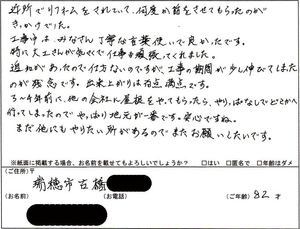 近所でリフォームをされていて、何度か話をさせてもらったのが
きっかけでした。
工事中は、みなさん丁寧な言葉使いで良かったです。
特に大工さんが忙しくて仕事を頑張ってくれました。
追加があったので仕方ないのですが、工事の期間が少し伸びてしまった
のが残念です。出来上がりは百点満点です。
3〜4年前に、他の会社に屋根をやってもらったら、やりっぱなしでどこかへ
行ってしまったので、やっぱり地元が一番です。安心ですね。
まだ他にもやりたい所があるのでまたお願いしたいです。
※紙面に掲載する場合、お名前を載せてもよろしいでしょうか? □はい □匿名で □年齢はダメ
(ご住所)〒
瑞穂市古橋
(お名前) (お電話) (ご年齢) 82 才